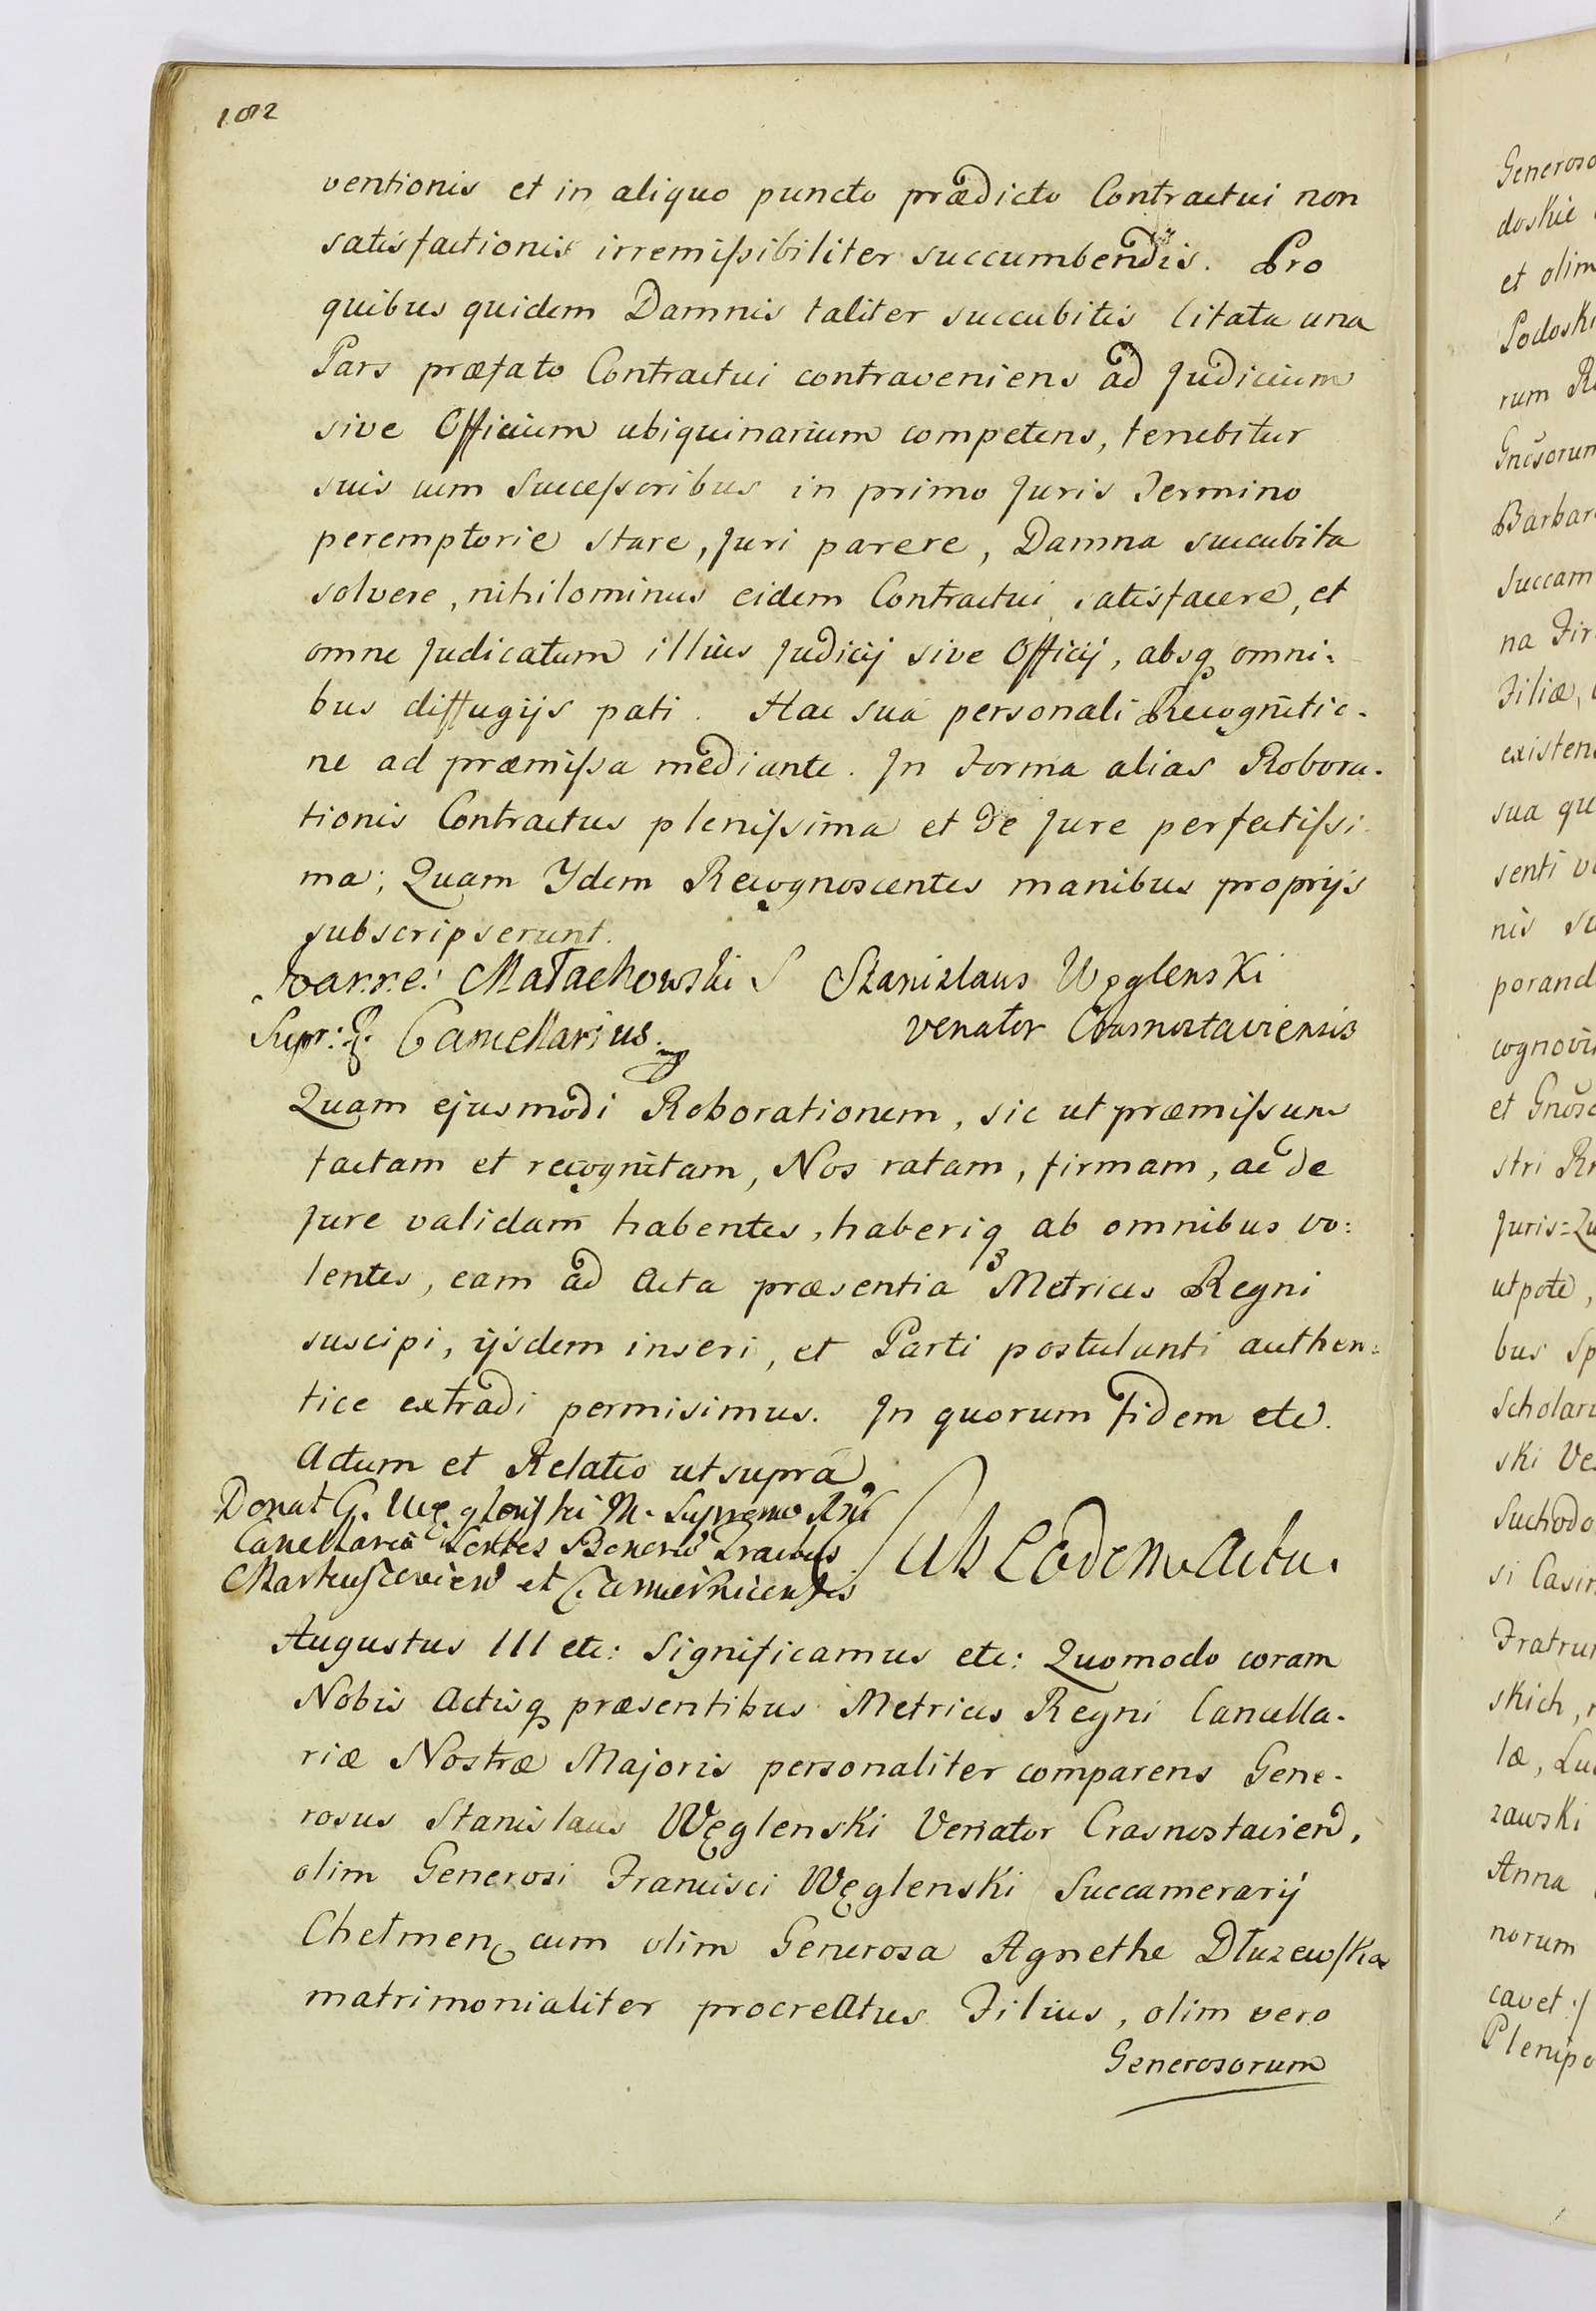 1082
ventionis et in aliquo puncto prædicto Contractui non
satisfactionis irremissibiliter succumbendis. Pro
quibus quidem Damnis taliter succubitis Citata una
Pars præfato Contractui contraveniens ad Judicium
sive Officium ubiquinarium competens, tenebitur
suis cum Successoribus in primo Juris Termino
peremptorie stare, Juri parere, Damna succubita
solvere, nihilominus eidem Contractui satisfacere, et
omne Judicatum illius Judicij sive Officij, absq omni-
bus diffugijs pati. Hac suâ personali Recognitio-
ne ad præmissa mediante. In Forma alias Robora-
tionis Contractus plenissima et de Jure perfectissi-
ma; Quam Ydem Recognoscentes manibus proprijs
subscripserunt.
Joanne: Małachowski S
Supr: R. Cancellarius. mp
Stanizlaus Węglenski
venator Crasnostaviensis
Quam ejusmodi Roborationem, sic ut præmissum
factam et recognitam, Nos ratam, firmam, ac de
Jure validam habentes, haberiq ab omnibus vo:
lentes, eam ad Acta præsentia Metrices Regni
suscipi, ijsdem inseri, et Parti postulanti authen:
tice extradi permisimus. In quorum Fidem etc.
Actum et Relatio ut supra
Donat G. Węglenski M. Supremo Rni
Cancellario Sortes Bonorū
et
Sub eodem Actu.
Augustus III etc: Significamus etc: Quomodo coram
Nobis Actisq præsentibus Metrices Regni Cancella-
riæ Nostræ Majoris personaliter comparens Gene-
rosus Stanislaus Węglenski Venator Crasnostavien,
olim Generosi Francisci Węglenski Succamerarij
Chełmen cum olim Generosa Agnethe Dłuzewska
matrimonialiter procreatus Filius, olim vero
Generosorum
Generoso
doskie
et olim
Podoski
rum
Gnosorum
Barbar
Succam
na Fir
Filiæ,
existen
sua qu
senti
nis
porand
cognovi
et
stri
Juris=
utpote,
bus Sp
Scholari
ski Ve
Suchodo
si Casim
Fratrum
skich,
læ, Lu
zawski
Anna
norum
cavet:/
Plenipo